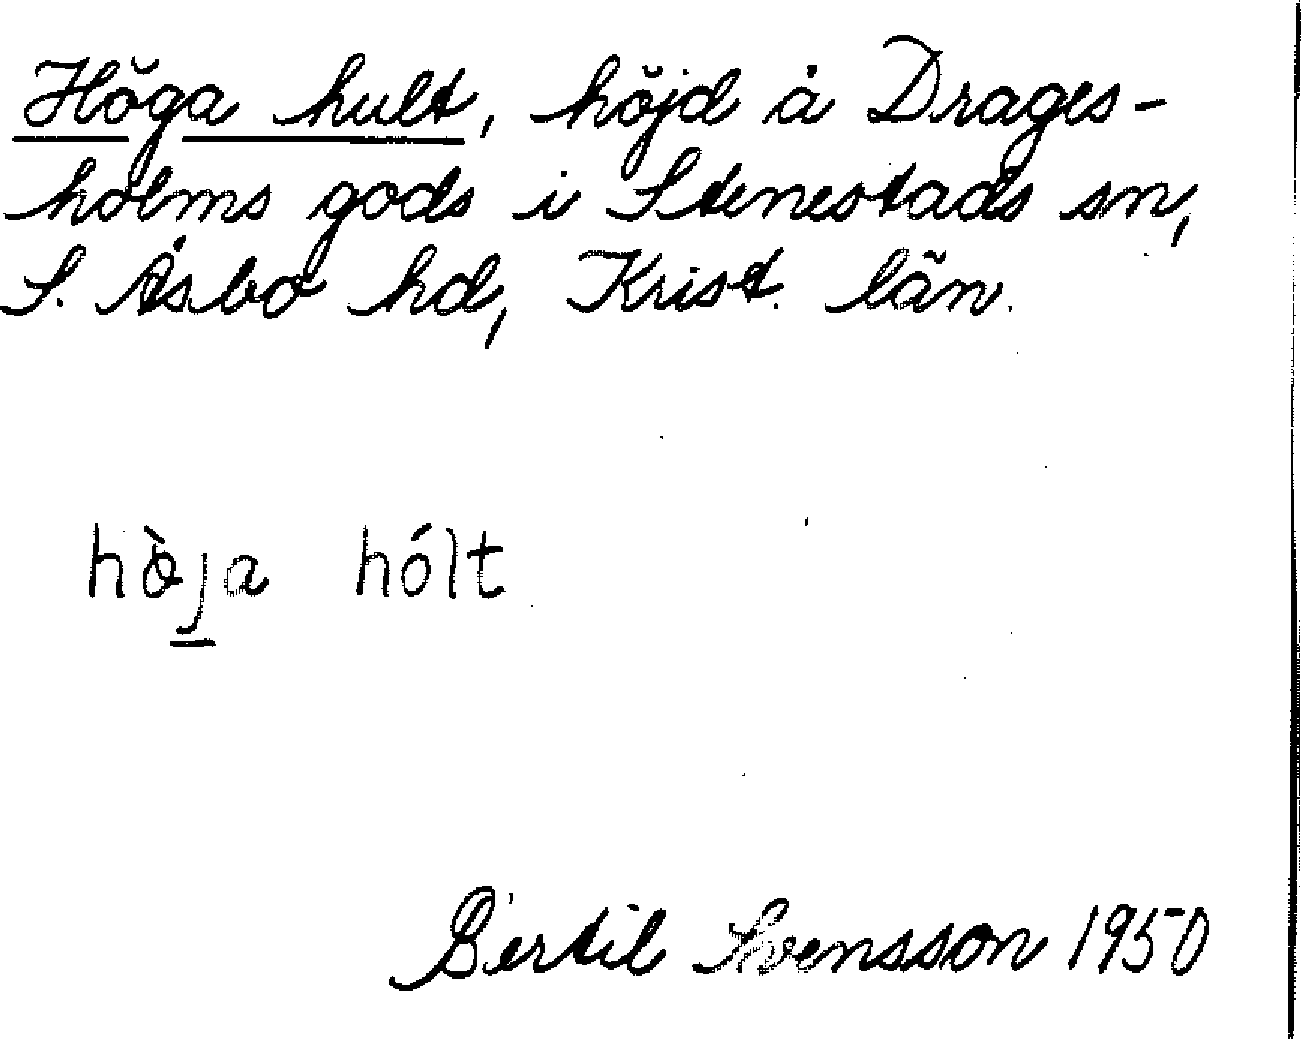 Höga hult, höjd å Drages-
holms gods i Stenestads sn,
S. Åsbo hd, Krist. län.
hø̀ja hólt
Bertil Svensson 1950